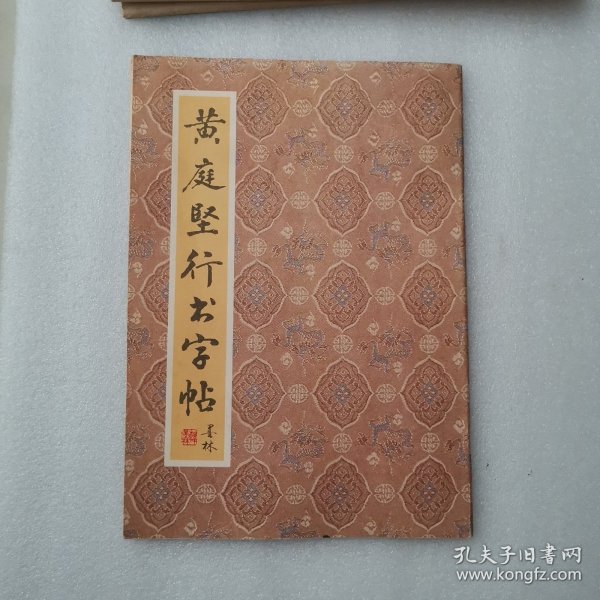 黄庭坚行书字帖
墨林
孔夫子旧书网
www.kongfz.com